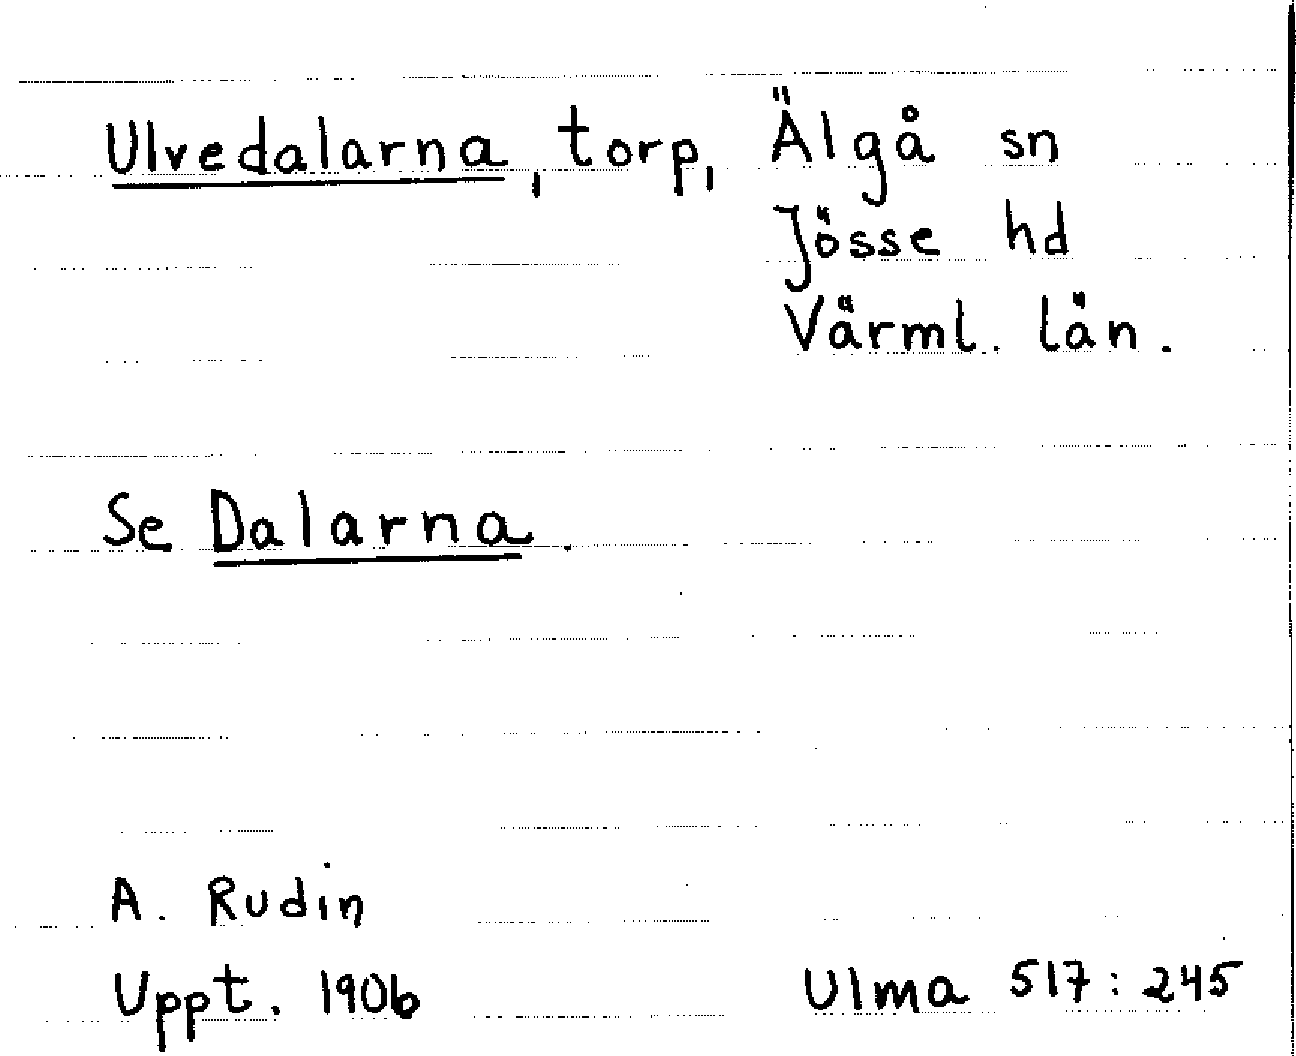 Ulvedalarna, torp, Älgå sn
Jösse hd
Värml. län.
Se Dalarna.
A. Rudin
Uppt. 1906
Ulma 517:245